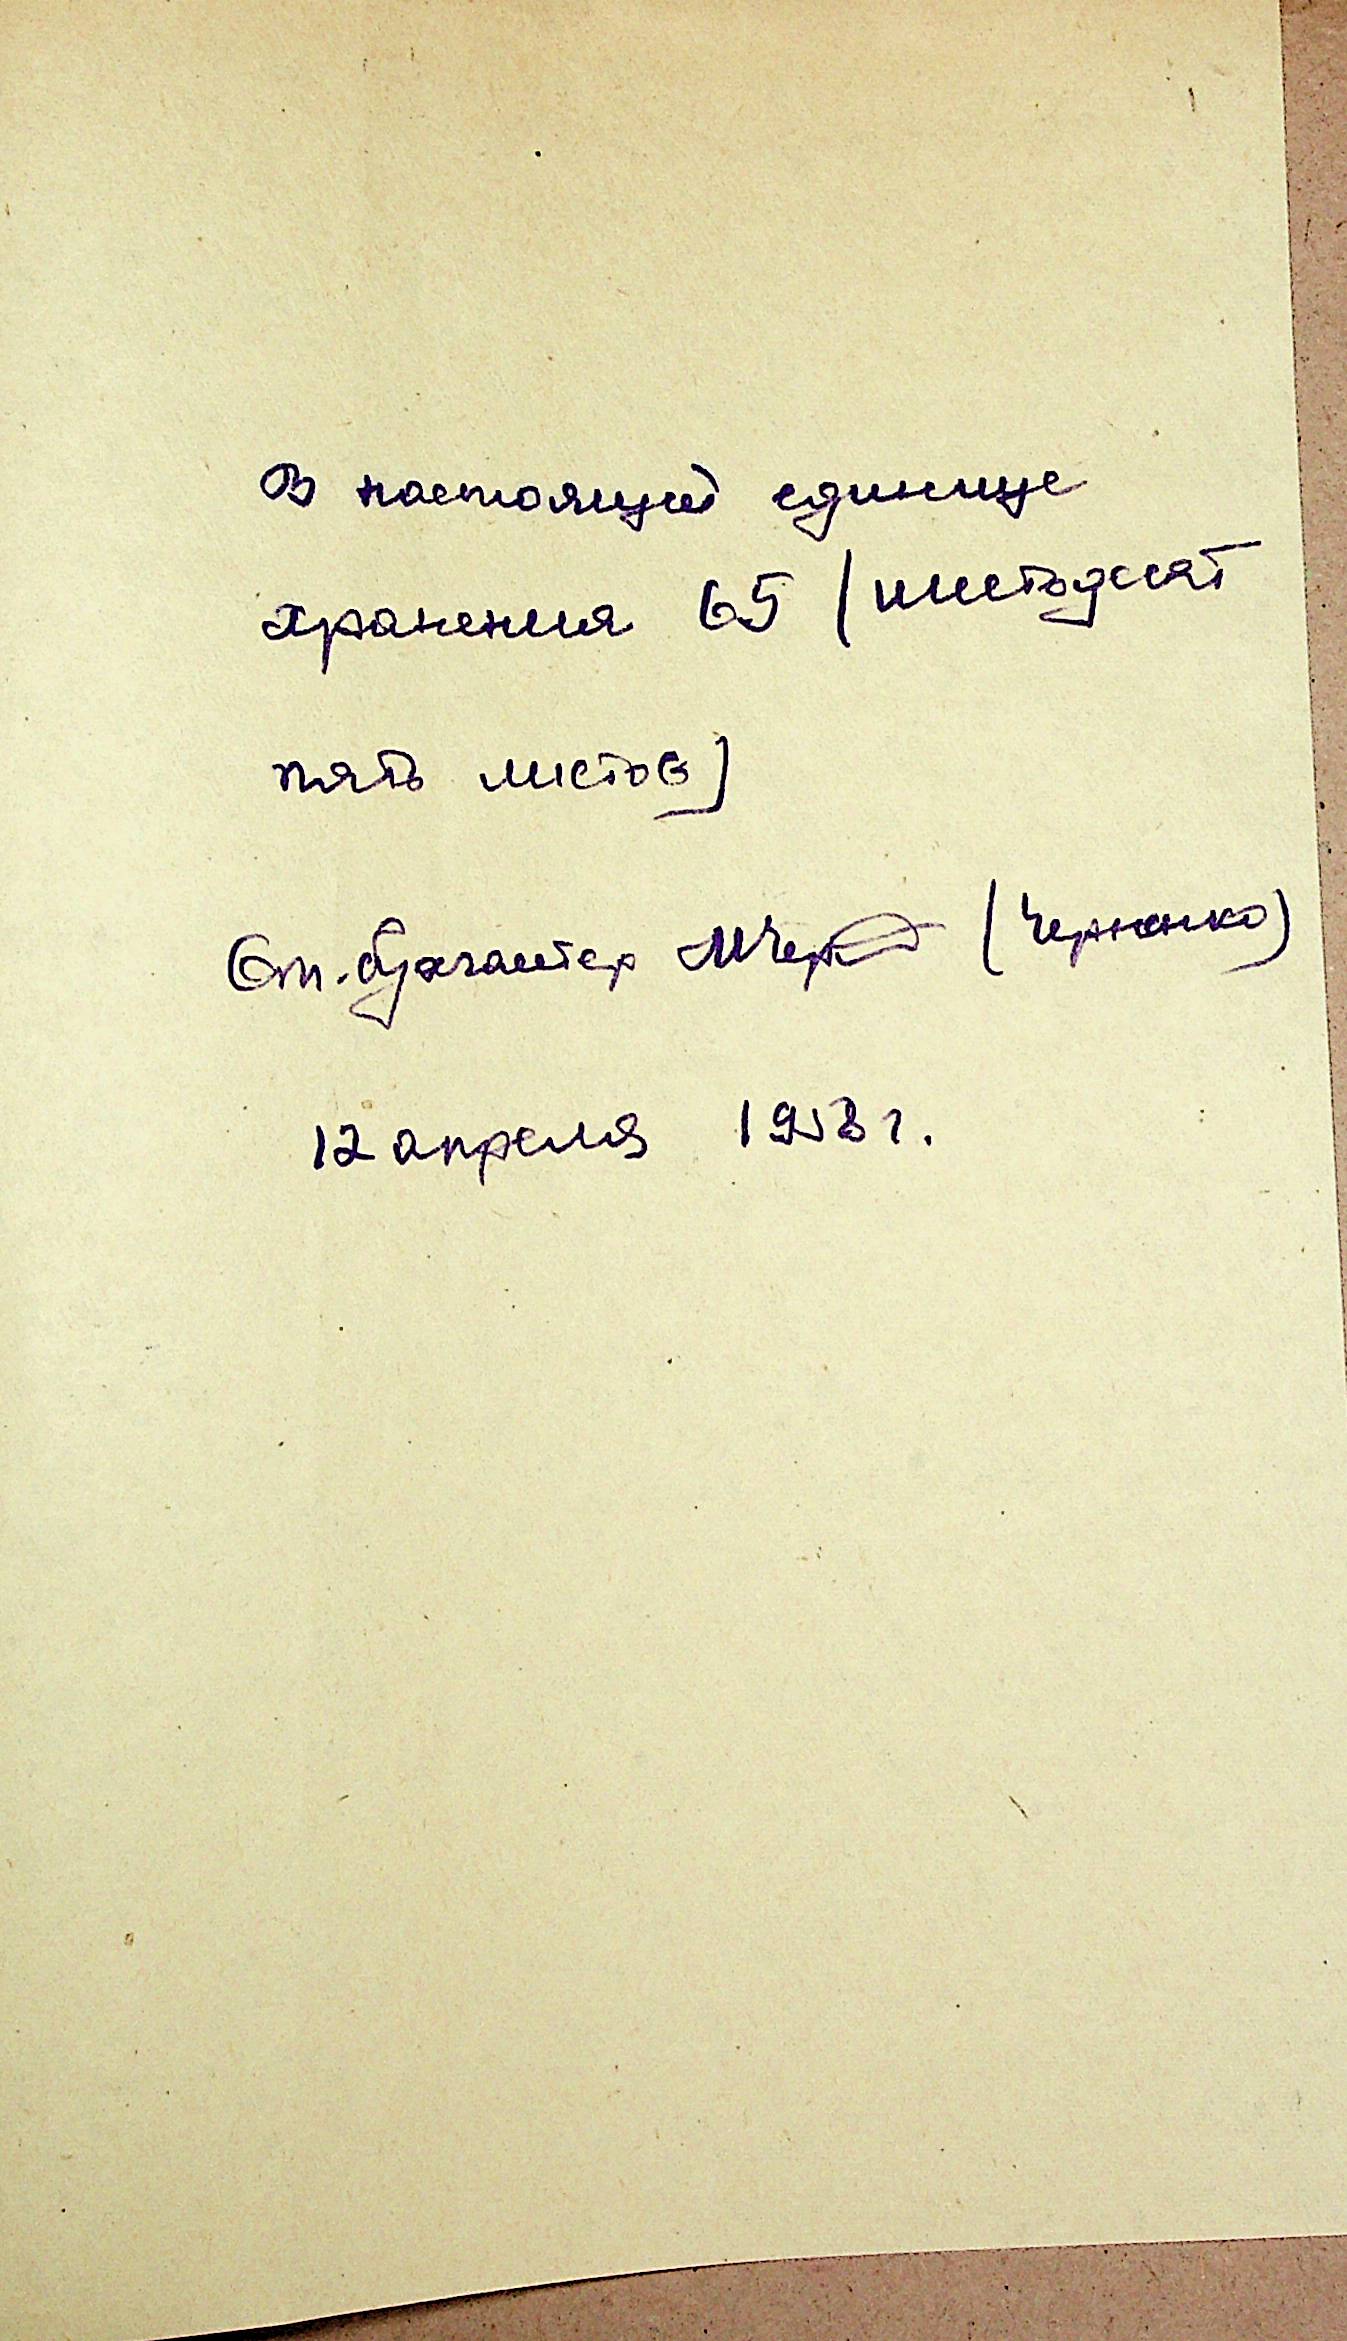 В настоящей единице
хранения 65 (шестьдесят
пять листов)
Ст. бухгалтер МЧер (Черненко)
12 апреля 1953 г.